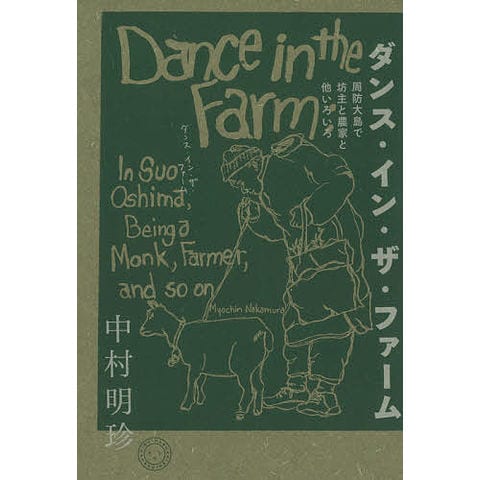 Dance in the
Farm
ダンス・イン・ザ・ファーム
周防大島で
坊主と農家と
他いろいろ
ダンス イン・ザ
ファーム
In Suo-
Oshima,
Being a
Monk, Farmer,
and so on
Myochin Nakamura
中村明珍